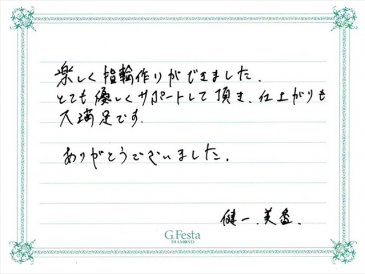 楽しく指輪作りができました。
とても優しくサポートして頂き、仕上がりも
大満足です。
ありがとうございました。
健一、美
G.Festa